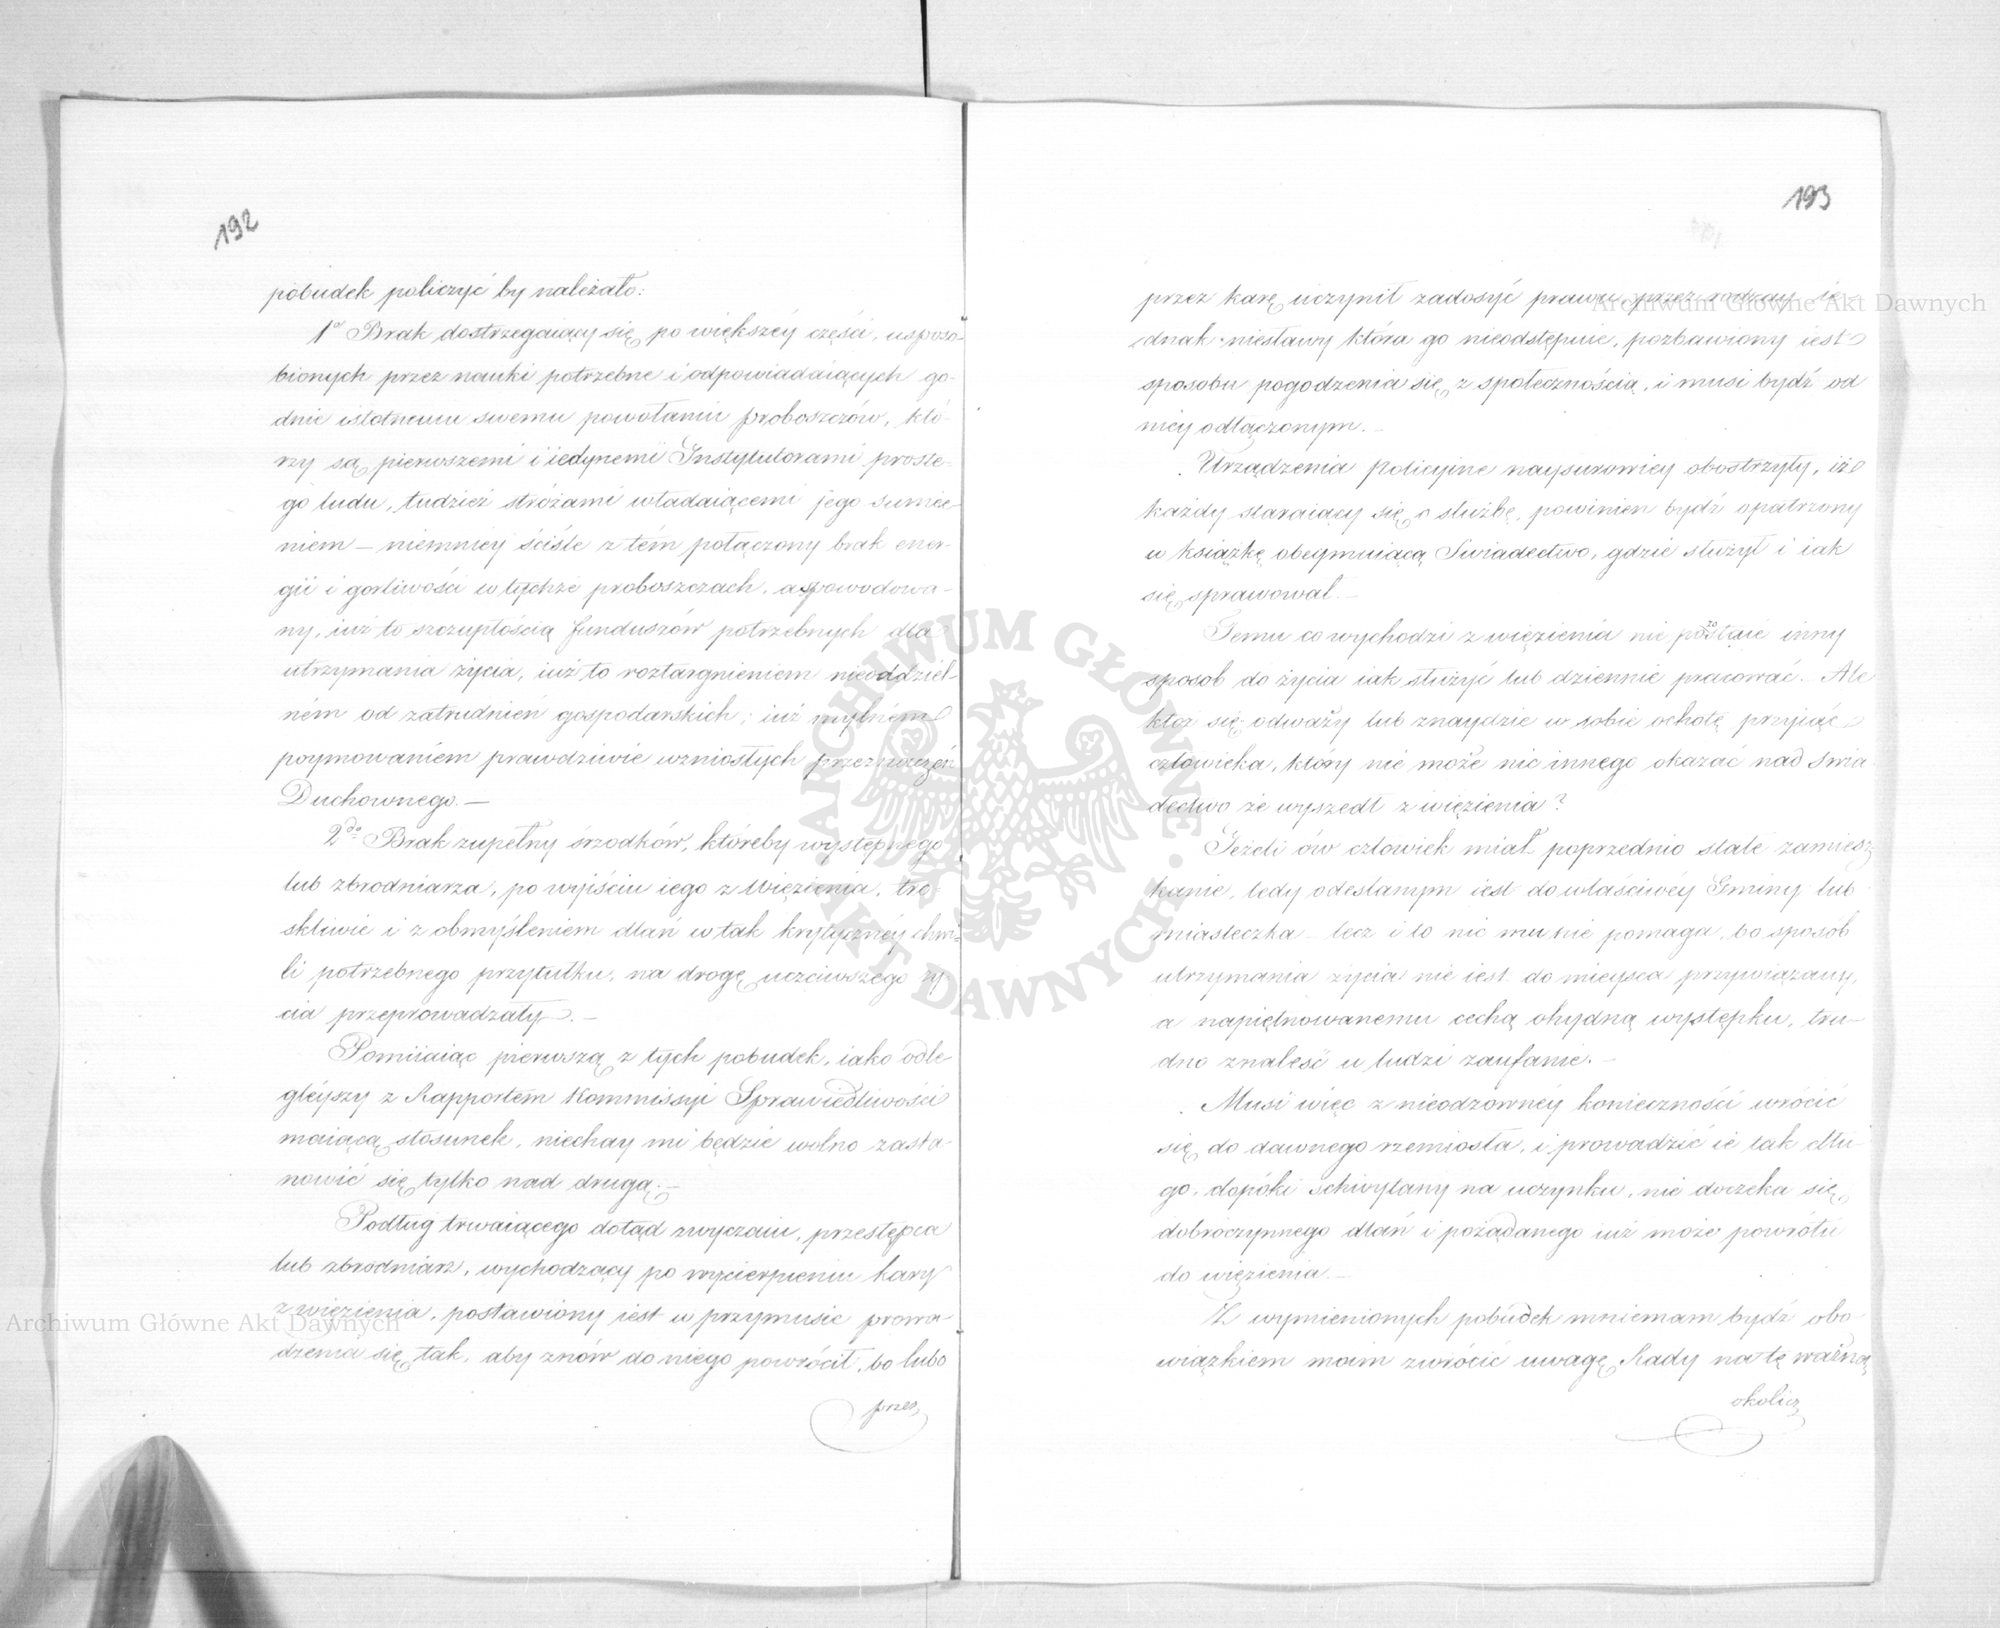 192
pobudek policzyć by należało:
1º Brak dostrzegaiący się po większéy części, usposo-
bionych przez nauki potrzebne i odpowiadaiących go-
dnie istotnemu swemu powołaniu proboszczów, któ-
rzy są pierwszemi i iedynemi Instytutorami proste-
go ludu, tudzież stróżami władaiącemi jego sumie-
niem — niemniey ściśle z tém połączony brak ener-
gii i gorliwości w tychże proboszczach, a spowodowa-
ny, iuż to szczupłością funduszów potrzebnych dla
utrzymania życia, iuż to roztargnieniem nieoddziel-
ném od zatrudnień gospodarskich; iuż mylném
poymowaniem prawdziwie wzniosłych przeznaczeń
Duchownego. —
2do Brak zupełny śrzodków, któreby występnego
lub zbrodniarza, po wyjściu iego z Więzienia, tro-
skliwie i z obmyśleniem dlań w tak krytycznéy chwi-
li potrzebnego przytułku, na drogę uczciwszego ży-
cia przeprowadzały. —
Pomiiaiąc pierwszą z tych pobudek, iako odle-
gléyszy z Rapportem Kommissyi Sprawiedliwości
maiącą stosunek, niechay mi będzie wolno zasta-
nowić się tylko nad drugą. —
Podług trwaiącego dotąd zwyczaiu, przestępca
lub zbrodniarz, wychodzący po wycierpieniu kary
z więzienia, postawiony iest w przymusie prowa-
dzenia się tak, aby znów do niego powrócił, bo lubo
przez
193
przez karę uczynił zadosyć prawu, przez rodzay ie-
dnak niesławy która go nieodstępuie, pozbawiony iest
sposobu pogodzenia się z społecznością, i musi bydź od
niey odłączonym. —
Urządzenia policyine naysurowiey obostrzyły, iż
każdy staraiący się o służbę, powinien bydź opatrzony
w książkę obeymuiącą Świadectwo, gdzie służył i iak
się sprawował. —
Temu co wychodzi z więzienia nie pozostaie inny
sposob do życia iak służyć lub dziennie pracować. Ale
ktoż się odważy lub znaydzie w sobie ochotę przyiąć
człowieka, który nie może nic innego okazać nad świa-
dectwo że wyszedł z więzienia?
Jeżeli ów człowiek miał poprzednio stałe zamiesz-
kanie, tedy odesłanym iest do właściwéy Gminy lub
miasteczka — lecz i to nic mu nie pomaga, bo sposób
utrzymania życia nie iest do mieysca przywiązany,
a napiętnowanemu cechą ohydną występku, tru-
dno znaleść u ludzi zaufanie. —
Musi więc z nieodzownéy konieczności wrócić
się do dawnego rzemiosła, i prowadzić ie tak dłu-
go, dopóki schwytany na uczynku, nie doczeka się
dobroczynnego dlań i pożądanego iuż może powrótu
do więzienia. —
Z wymienionych pobudek mniemam bydź obo-
wiązkiem moim zwrócić uwagę Rady na tę ważną
okolicz
Archiwum Główne Akt Dawnych
Archiwum Główne Akt Dawnych
ARCHIWUM GŁÓWNE AKT DAWNYCH